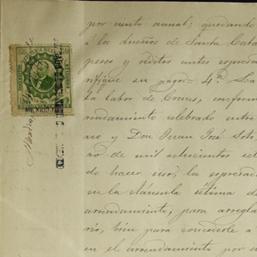 por ciento anual; quedando
á los dueños de Santa Cata
pesos y réditos antes espresa
ifique su pago. 4ª La
la Labor de Cruces, conforme
rendamiento celebrado entre
co y Don Juan José Soto
ño de mil ochocientos seten
do hacer uso, la espresada
en la cláusula última de
arrendamiento, para arregla
rio, bien para concederle a
en el arrendamiento por e